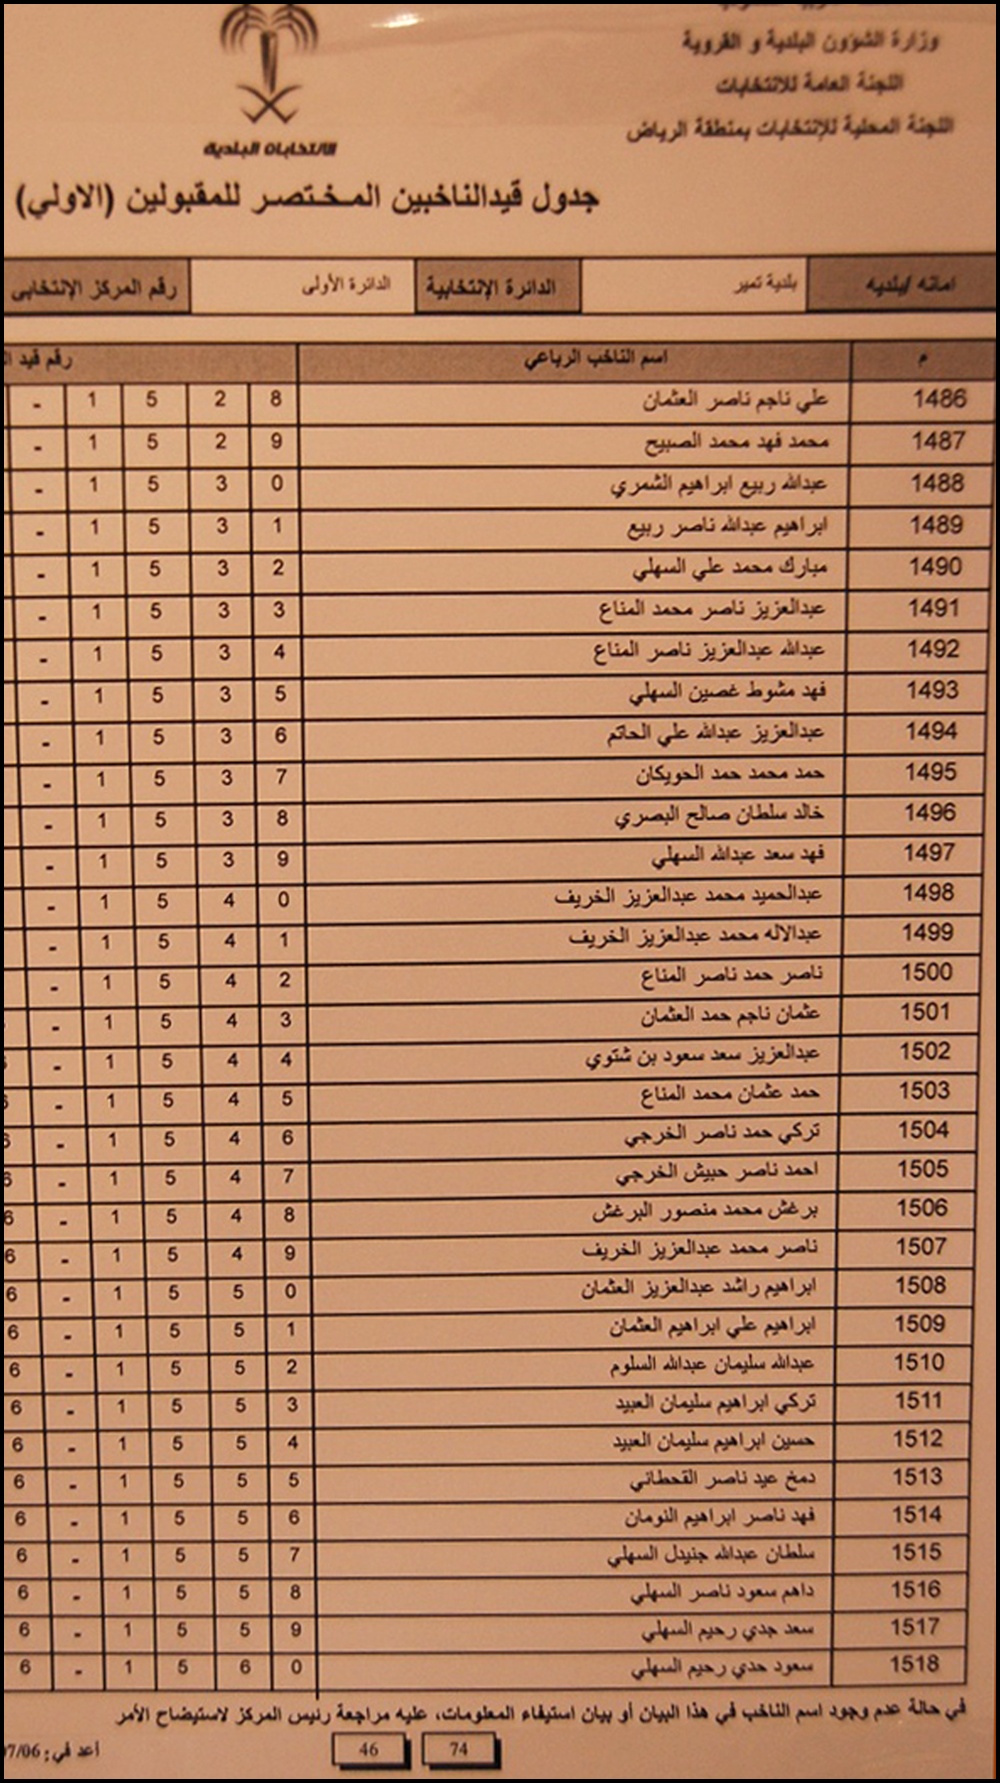 وزارة الشؤون البلدية و القروية
اللجنة العامة للانتخابات
اللجنة المحلية للإنتخابات بمنطقة الرياض
الانتخابات البلدية
جدول قيدالناخبين المختصر للمقبولين (الاولي)
امانه /بلديه بلدية تمير الدائرة الإنتخابية الدائرة الأولى رقم المركز الإنتخابى
م اسم الناخب الرباعي رقم قيد
1486 علي ناجم ناصر العثمان 8 2 5 1 -
1487 محمد فهد محمد الصبيح 9 2 5 1 -
1488 عبدالله ربيع ابراهيم الشمري 0 3 5 1 -
1489 ابراهيم عبدالله ناصر ربيع 1 3 5 1 -
1490 مبارك محمد علي السهلي 2 3 5 1 -
1491 عبدالعزيز ناصر محمد المناع 3 3 5 1 -
1492 عبدالله عبدالعزيز ناصر المناع 4 3 5 1 -
1493 فهد مشوط غصين السهلي 5 3 5 1 -
1494 عبدالعزيز عبدالله علي الحاتم 6 3 5 1 -
1495 حمد محمد حمد الحويكان 7 3 5 1 -
1496 خالد سلطان صالح البصري 8 3 5 1 -
1497 فهد سعد عبدالله السهلي 9 3 5 1 -
1498 عبدالحميد محمد عبدالعزيز الخريف 0 4 5 1 -
1499 عبدالاله محمد عبدالعزيز الخريف 1 4 5 1 -
1500 ناصر حمد ناصر المناع 2 4 5 1 -
1501 عثمان ناجم حمد العثمان 3 4 5 1 -
1502 عبدالعزيز سعد سعود بن شتوي 4 4 5 1 -
1503 حمد عثمان محمد المناع 5 4 5 1 - 6
1504 تركي حمد ناصر الخرجي 6 4 5 1 - 6
1505 احمد ناصر حبيش الخرجي 7 4 5 1 - 6
1506 برغش محمد منصور البرغش 8 4 5 1 - 6
1507 ناصر محمد عبدالعزيز الخريف 9 4 5 1 - 6
1508 ابراهيم راشد عبدالعزيز العثمان 0 5 5 1 - 6
1509 ابراهيم علي ابراهيم العثمان 1 5 5 1 - 6
1510 عبدالله سليمان عبدالله السلوم 2 5 5 1 - 6
1511 تركي ابراهيم سليمان العبيد 3 5 5 1 - 6
1512 حسين ابراهيم سليمان العبيد 4 5 5 1 - 6
1513 دمخ عيد ناصر القحطاني 5 5 5 1 - 6
1514 فهد ناصر ابراهيم النومان 6 5 5 1 - 6
1515 سلطان عبدالله جنيدل السهلي 7 5 5 1 - 6
1516 داهم سعود ناصر السهلي 8 5 5 1 - 6
1517 سعد جدي رحيم السهلي 9 5 5 1 - 6
1518 سعود حدي رحيم السهلي 0 6 5 1 - 6
في حالة عدم وجود اسم الناخب في هذا البيان أو بيان استيفاء المعلومات، عليه مراجعة رئيس المركز لاستيضاح الأمر
74 46 أعد في: 07/06